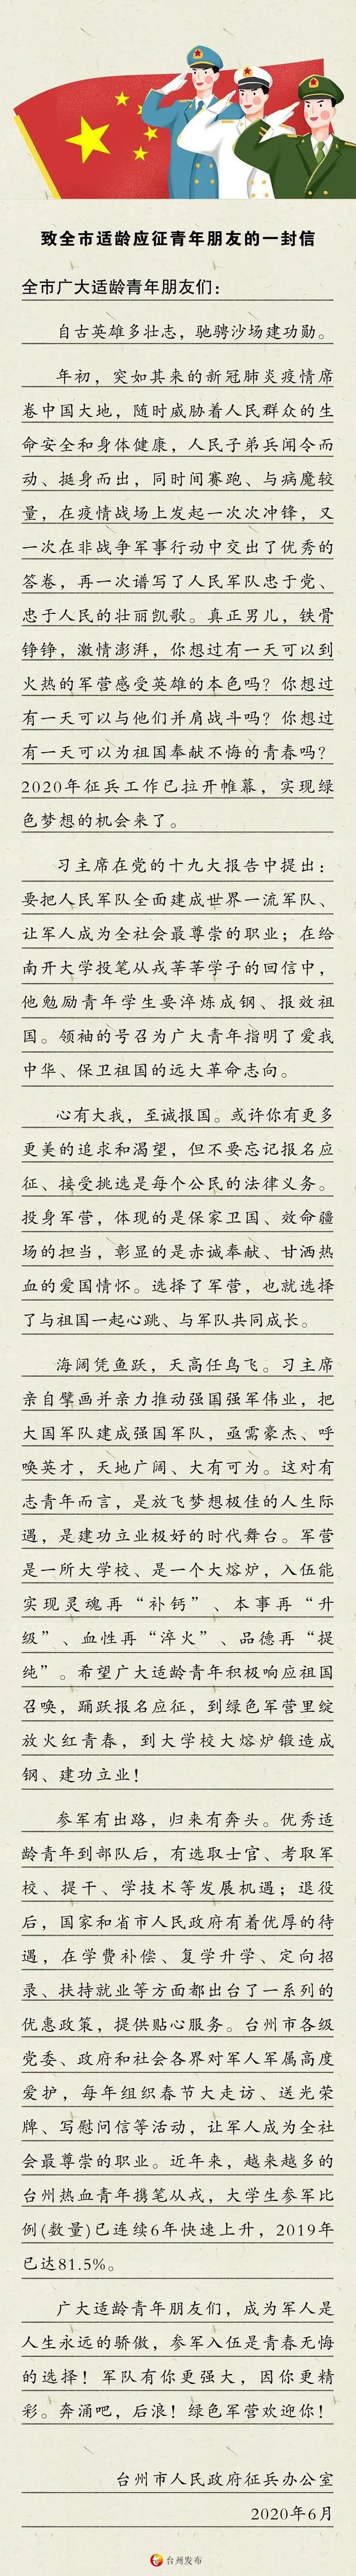 致全市适龄应征青年朋友的一封信
全市广大适龄青年朋友们：
自古英雄多壮志，驰骋沙场建功勋。
年初，突如其来的新冠肺炎疫情席
卷中国大地，随时威胁着人民群众的生
命安全和身体健康，人民子弟兵闻令而
动、挺身而出，同时间赛跑、与病魔较
量，在疫情战场上发起一次次冲锋，又
一次在非战争军事行动中交出了优秀的
答卷，再一次谱写了人民军队忠于党、
忠于人民的壮丽凯歌。真正男儿，铁骨
铮铮，激情澎湃，你想过有一天可以到
火热的军营感受英雄的本色吗？你想过
有一天可以与他们并肩战斗吗？你想过
有一天可以为祖国奉献不悔的青春吗？
2020年征兵工作已拉开帷幕，实现绿
色梦想的机会来了。
习主席在党的十九大报告中提出：
要把人民军队全面建成世界一流军队、
让军人成为全社会最尊崇的职业；在给
南开大学投笔从戎莘莘学子的回信中，
他勉励青年学生要淬炼成钢、报效祖
国。领袖的号召为广大青年指明了爱我
中华、保卫祖国的远大革命志向。
心有大我，至诚报国。或许你有更多
更美的追求和渴望，但不要忘记报名应
征、接受挑选是每个公民的法律义务。
投身军营，体现的是保家卫国、效命疆
场的担当，彰显的是赤诚奉献、甘洒热
血的爱国情怀。选择了军营，也就选择
了与祖国一起心跳、与军队共同成长。
海阔凭鱼跃，天高任鸟飞。习主席
亲自擘画并亲力推动强国强军伟业，把
大国军队建成强国军队，亟需豪杰、呼
唤英才，天地广阔、大有可为。这对有
志青年而言，是放飞梦想极佳的人生际
遇，是建功立业极好的时代舞台。军营
是一所大学校、是一个大熔炉，入伍能
实现灵魂再“补钙”、本事再“升
级”、血性再“淬火”、品德再“提
纯”。希望广大适龄青年积极响应祖国
召唤，踊跃报名应征，到绿色军营里绽
放火红青春，到大学校大熔炉锻造成
钢、建功立业！
参军有出路，归来有奔头。优秀适
龄青年到部队后，有选取士官、考取军
校、提干、学技术等发展机遇；退役
后，国家和省市人民政府有着优厚的待
遇，在学费补偿、复学升学、定向招
录、扶持就业等方面都出台了一系列的
优惠政策，提供贴心服务。台州市各级
党委、政府和社会各界对军人军属高度
爱护，每年组织春节大走访、送光荣
牌、写慰问信等活动，让军人成为全社
会最尊崇的职业。近年来，越来越多的
台州热血青年携笔从戎，大学生参军比
例(数量)已连续6年快速上升，2019年
已达81.5%。
广大适龄青年朋友们，成为军人是
人生永远的骄傲，参军入伍是青春无悔
的选择！军队有你更强大，因你更精
彩。奔涌吧，后浪！绿色军营欢迎你！
台州市人民政府征兵办公室
2020年6月
台州发布